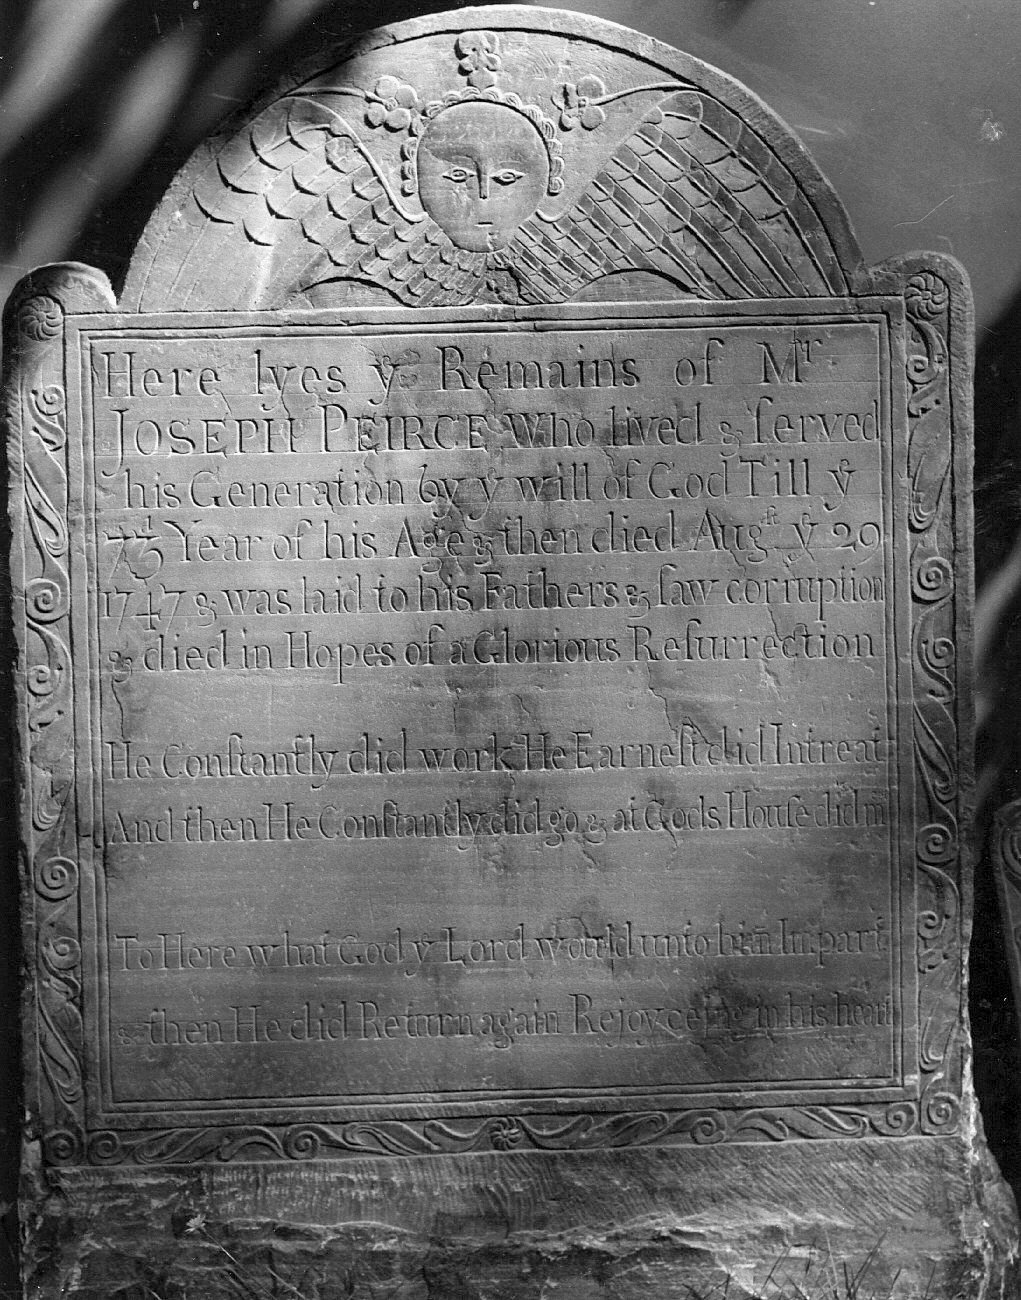 Here lyes yᵉ Remains of Mʳ·
JOSEPH PEIRCE who lived & ſerved
his Generation by yᵉ will of God Till yᵉ
73ᵈ Year of his Age & then died Augˢᵗ yᵉ 29
1747 & was laid to his Fathers & ſaw corruption
& died in Hopes of a Glorious Reſurrection
He Conſtantly did work He Earneſt did Intreat
And then He Conſtantly did go & at Gods Houſe did mᵗ
To Here what God yᵉ Lord would unto him Impart
& then He did Return again Rejoyceing in his heart